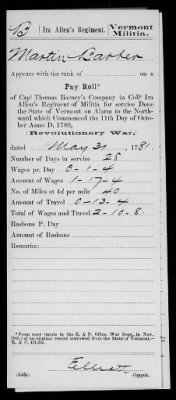 B | Ira Allen's Regiment. | Vermont Militia.
Martin Barber
Appears with the rank of on a
Pay Roll*
of Capt Thomas Barney's Company in Coll° Ira
Allen's Regiment of Militia for service Done
the State of Vermont on Alarm to the North-
ward which Commenced the 11th Day of Oc-
tober Anno D. 1780,
Revolutionary War,
dated May 21, 1781.
Number of Days in service 28
Wages pr. Day 0-1-4
Amount of Wages 1-17-4
No. of Miles at 4d per mile 40
Amount of Travel 0-13-4
Total of Wages and Travel 2-10-8
Rashons P. Day
Amount of Rashons
Remarks:
*From copy made in the R. & P. Office, War Dept., in Nov.,
of an original record borrowed from the State of Vermont.—
R. & P.
Elliott
Copyist.